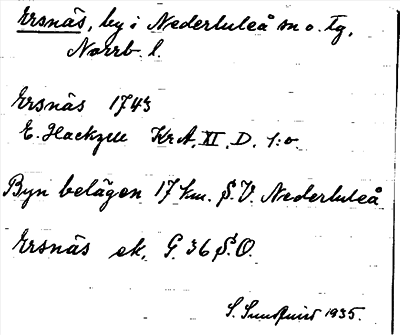 Ersnäs, by i Nederluleå sn o. tg,
Norrb. l.
Ersnäs 1743
E. Hackzell KrA, XI, D, 1:o
Byn belägen 17 km. S.V. Nederluleå
Ersnäs ek. G. 36 S.O.
S. Sundqvist 1935.